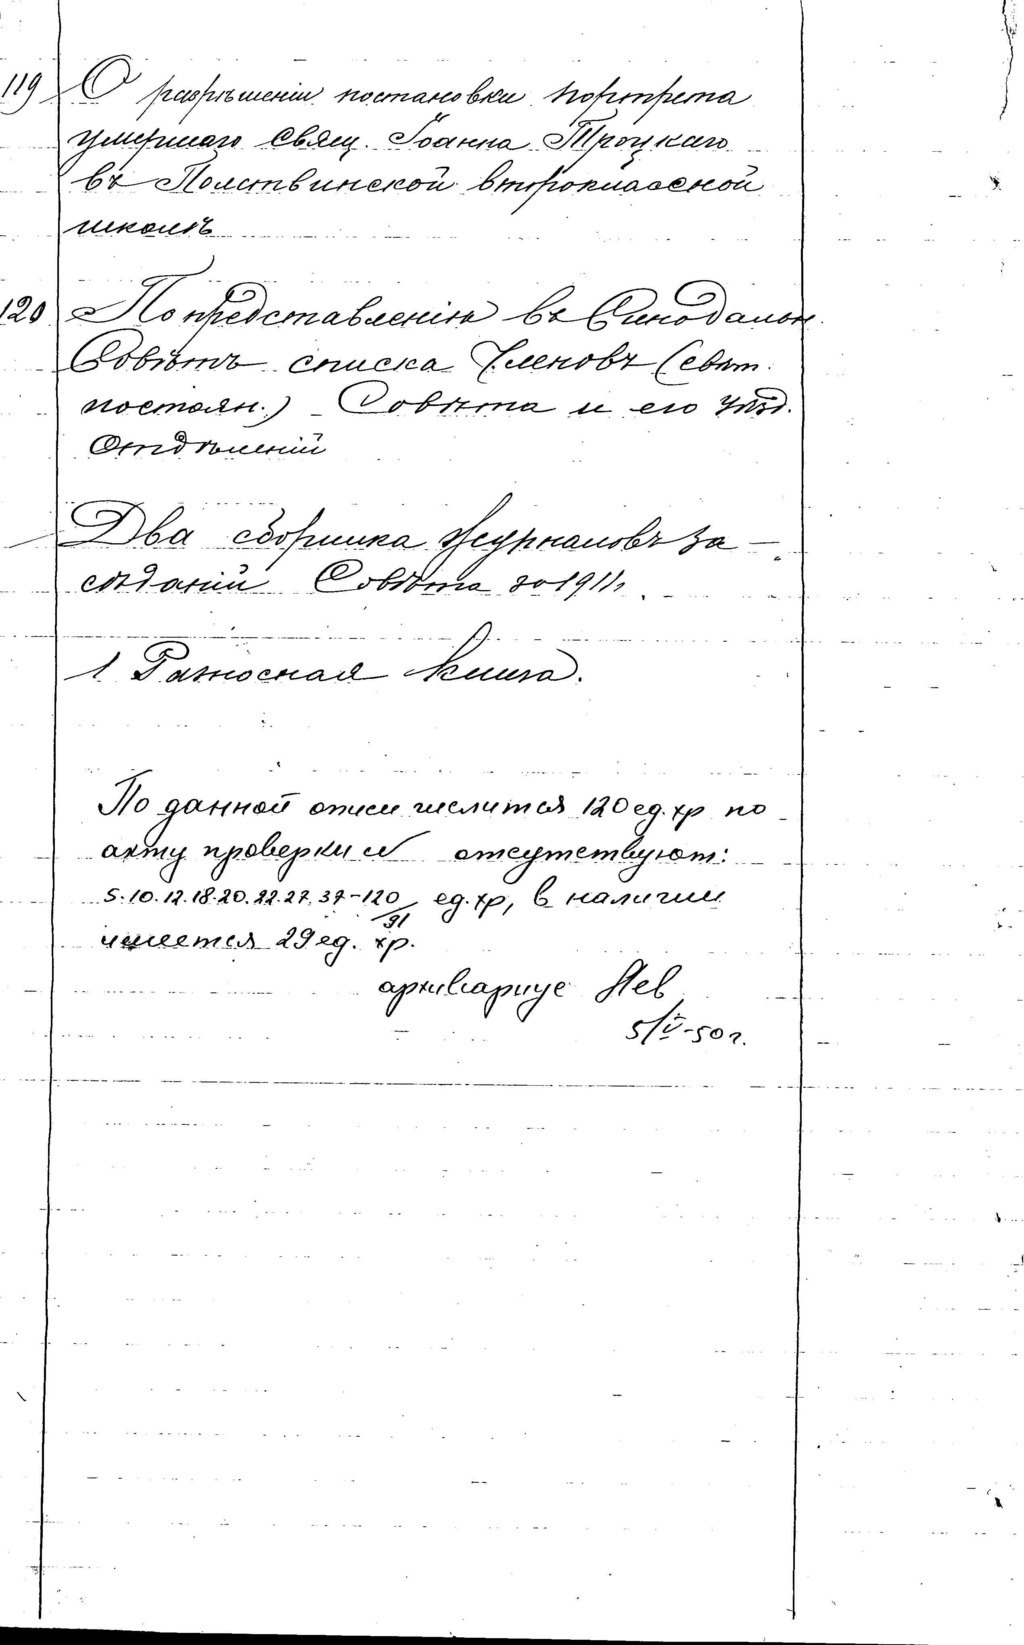 119 О разрѣшеніи постановки портрета
умершаго свящ. Іоанна Троцкаго
въ Полствинской второклассной
школѣ
120 По представленію въ Синодальн.
Совѣтъ списка Членовъ (свят.
постоян.) Совѣта и его Уѣзд.
Отдѣленій
Два сборника журналовъ за-
сѣданій Совѣта за 1911 г.
1 Разносная книга.
По данной описи числится 120 ед. хр по
акту проверки отсутствуют:
5. 10. 12. 18. 20. 22. 27. 37-120 ед. хр, в наличии
91
имеется 29 ед. хр.
архивариус Лев
5/V-50 г.